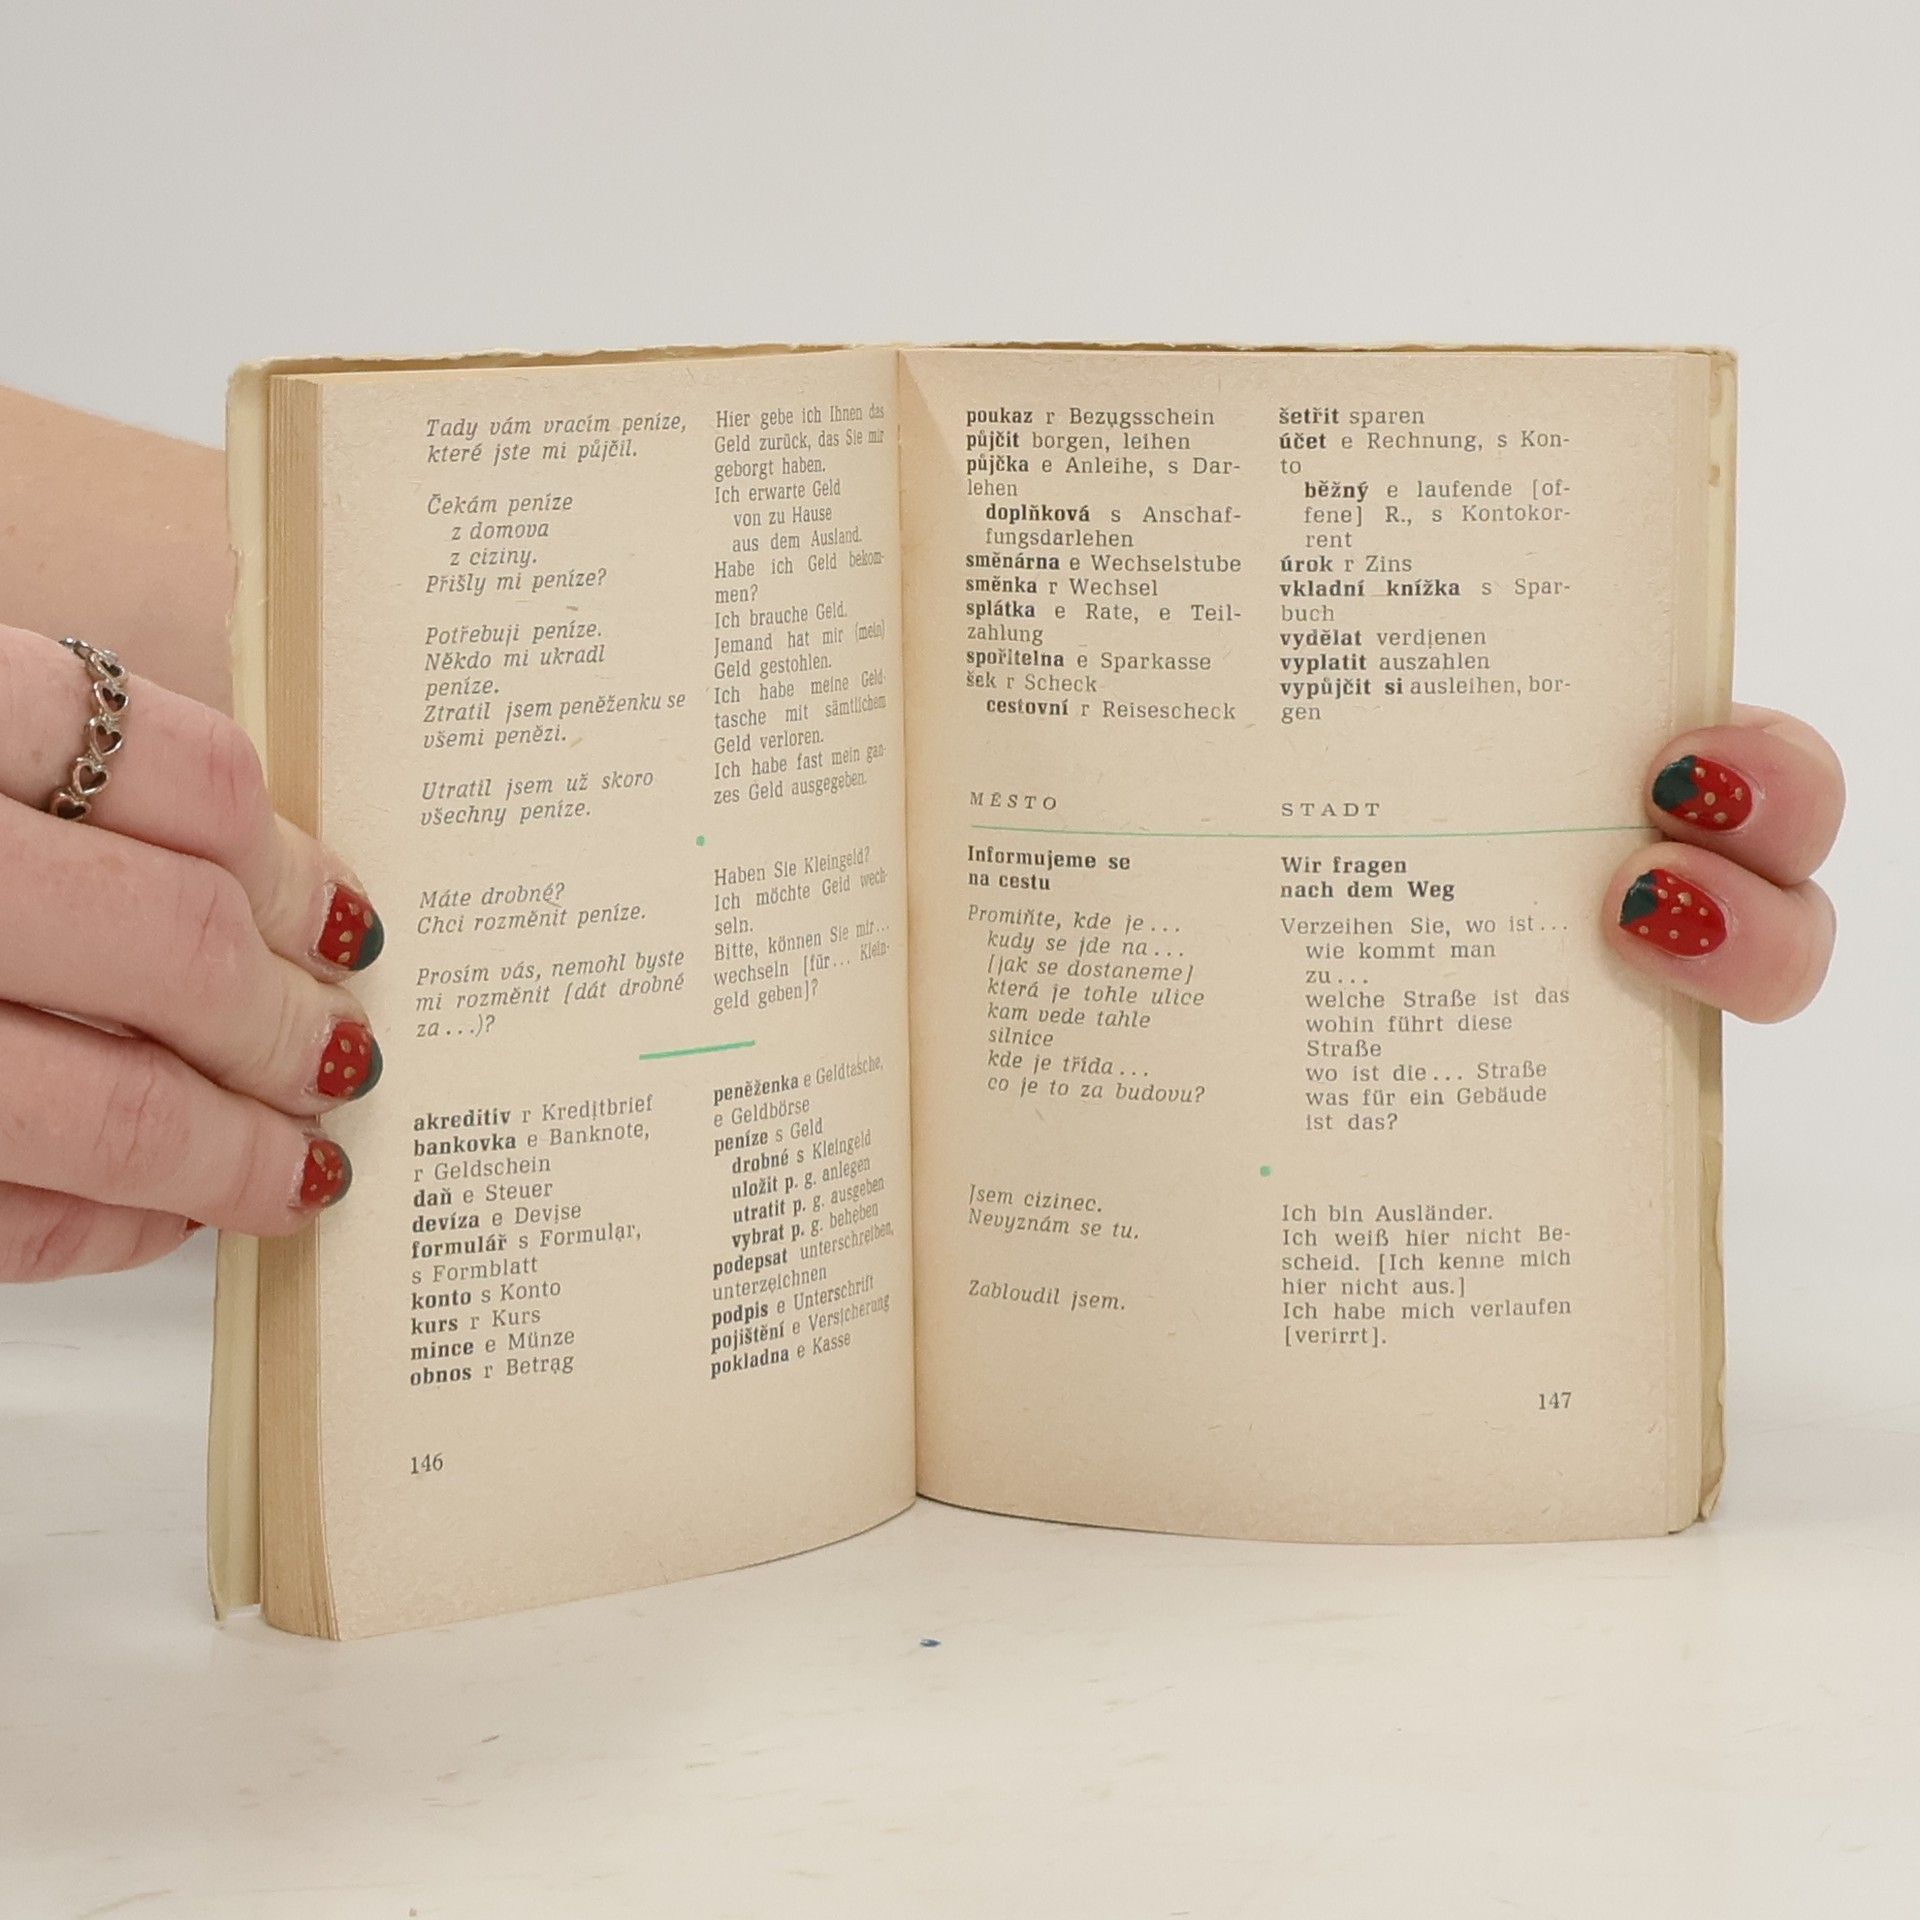 Tady vám vracím peníze,
které jste mi půjčil.
Čekám peníze
z domova
z ciziny.
Přišly mi peníze?
Potřebuji peníze.
Někdo mi ukradl
peníze.
Ztratil jsem peněženku se
všemi penězi.
Utratil jsem už skoro
všechny peníze.
Máte drobné?
Chci rozměnit peníze.
Prosím vás, nemohl byste
mi rozměnit [dát drobné
za...)?
Hier gebe ich Ihnen das
Geld zurück, das Sie mir
geborgt haben.
Ich erwarte Geld
von zu Hause
aus dem Ausland.
Habe ich Geld bekom-
men?
Ich brauche Geld.
Jemand hat mir (mein)
Geld gestohlen.
Ich habe meine Geld-
tasche mit sämtlichem
Geld verloren.
Ich habe fast mein gan-
zes Geld ausgegeben.
Haben Sie Kleingeld?
Ich möchte Geld wech-
seln.
Bitte, können Sie mir...
wechseln [für... Klein-
geld geben]?
akreditiv r Kreditbrief
bankovka e Banknote,
r Geldschein
daň e Steuer
devíza e Devise
formulář s Formular,
s Formblatt
konto s Konto
kurs r Kurs
mince e Münze
obnos r Betrag
peněženka e Geldtasche,
e Geldbörse
peníze s Geld
drobné s Kleingeld
uložit p. g. anlegen
utratit p. g. ausgeben
vybrat p. g. beheben
podepsat unterschreiben,
unterzeichnen
podpis e Unterschrift
pojištění e Versicherung
pokladna e Kasse
146
poukaz r Bezugsschein
půjčit borgen, leihen
půjčka e Anleihe, s Dar-
lehen
doplňková s Anschaf-
fungsdarlehen
směnárna e Wechselstube
směnka r Wechsel
splátka e Rate, e Teil-
zahlung
spořitelna e Sparkasse
šek r Scheck
cestovní r Reisescheck
šetřit sparen
účet e Rechnung, s Kon-
to
běžný e laufende [of-
fene] R., s Kontokor-
rent
úrok r Zins
vkladní knížka s Spar-
buch
vydělat verdienen
vyplatit auszahlen
vypůjčit si ausleihen, bor-
gen
MĚSTO
STADT
Informujeme se
na cestu
Promiňte, kde je...
kudy se jde na...
[jak se dostaneme]
která je tohle ulice
kam vede tahle
silnice
kde je třída...
co je to za budovu?
Jsem cizinec.
Nevyznám se tu.
Zabloudil jsem.
Wir fragen
nach dem Weg
Verzeihen Sie, wo ist...
wie kommt man
zu...
welche Straße ist das
wohin führt diese
Straße
wo ist die... Straße
was für ein Gebäude
ist das?
Ich bin Ausländer.
Ich weiß hier nicht Be-
scheid. [Ich kenne mich
hier nicht aus.]
Ich habe mich verlaufen
[verirrt].
147